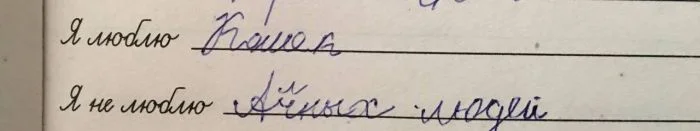 Я люблю Кошек
Я не люблю людей